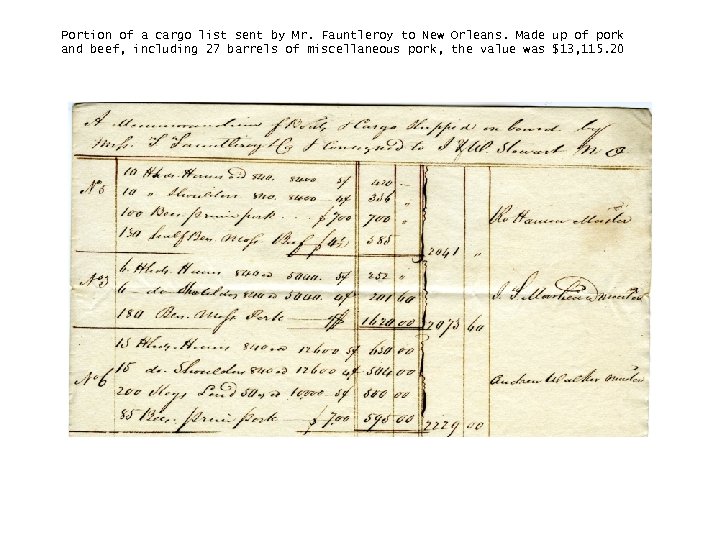 Portion of a cargo list sent by Mr. Fauntleroy to New Orleans. Made up of pork
and beef, including 27 barrels of miscellaneous pork, the value was $13,115.20
A Memorandum of Boats & Cargo Shipped on board by
Mess. T Fauntleroy & Co & Consigned to J & W. Stewart
No 5 10 Hhds Hams 840. 8400 5¢ 420 —
10 " Shoulders 840. 8400 4¢ 336 "
100 Bbs. prime pork $7.00 700 " Master
130 half Bbs. Mess Beef 585 2041 "
No 3 6 Hhds Hams 840 5040. 5¢ 252 "
6 — do Shoulders 840 5040. 4¢ 201 60 J. T.
180 Bbs. Mess Pork 1620 00 2073 60
No 6 15 Hhds. Hams 840 12600 5¢ 630 00
15 do Shoulders 840 12600 4¢ 504 00 Andrew Walker
200 Kegs Lard 50 10,000 5¢ 500 00
85 Bbs. prime pork $7.00 595 00 2229 00